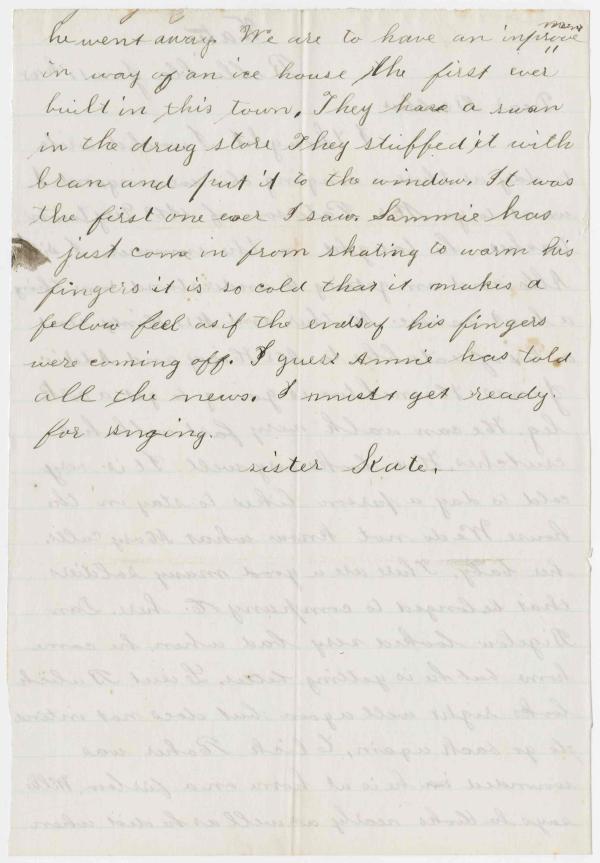 he went away. We are to have an improve
ment
in way of an ice house the first ever
built in this town. They have a swan
in the drug store They stuffed it with
bran and put it to the window. It was
the first one ever I saw. Sammie has
just come in from skating to warm his
fingers it is so cold that it makes a
fellow feel as if the ends of his fingers
were coming off. I guess Annie has told
all the news. I must get ready.
for singing.
sister Kate.